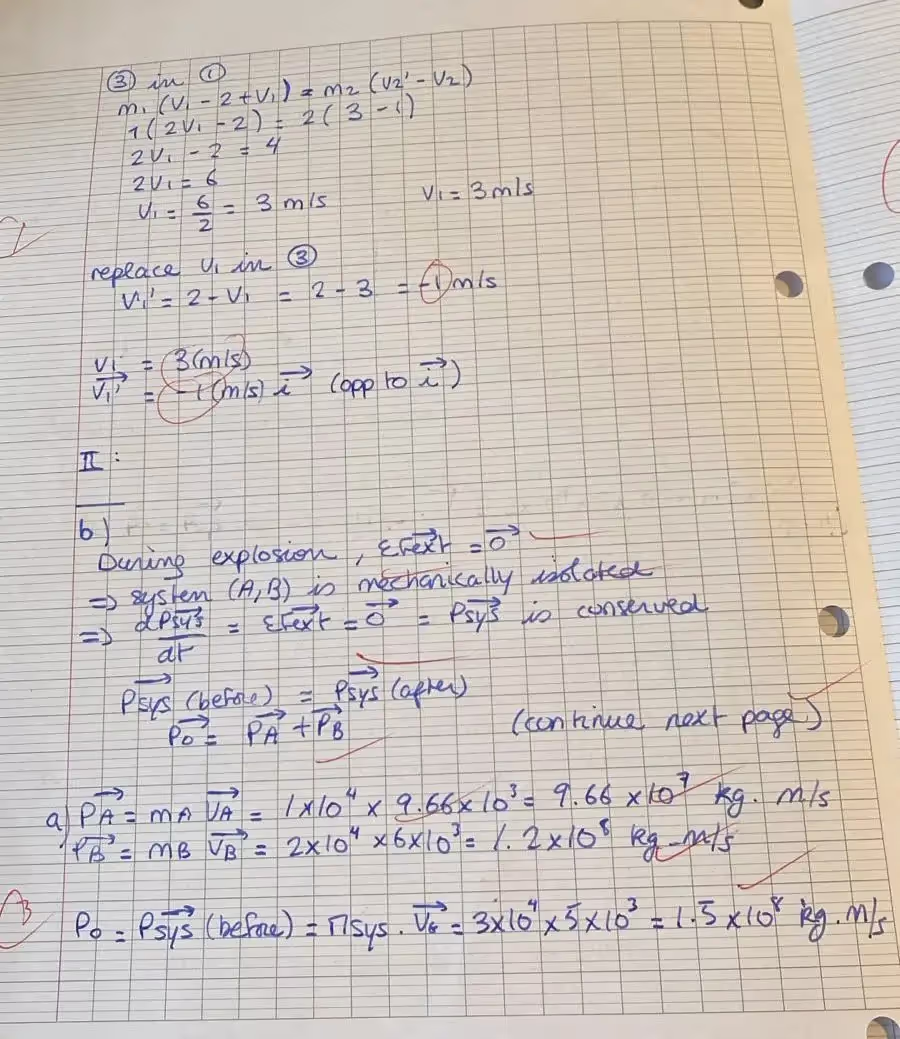 ③ in ①
m₁ (V₁ - 2 + V₁) = m₂ (V₂' - V₂)
1 (2V₁ - 2) = 2 (3 - 1)
2V₁ - 2 = 4
2V₁ = 6
V₁ = 6/2 = 3 m/s V₁ = 3 m/s
replace V₁ in ③
V₁' = 2 - V₁ = 2 - 3 = -1 m/s
V₁ = 3 (m/s)
V₁'→ = -1 (m/s) i→ (opp to i→)
II :
b)
During explosion, ΣFext→ = 0→
=> system (A, B) is mechanically isolated
=> dPsys→/dt = ΣFext→ = 0→ = Psys→ is conserved
Psys→ (before) = Psys→ (after)
P₀→ = PA→ + PB→ (continue next page)
a) PA→ = mA VA→ = 1×10⁴ × 9.66×10³ = 9.66 ×10⁷ kg. m/s
PB→ = mB VB→ = 2×10⁴ ×6×10³ = 1.2×10⁸ kg m/s
P₀ = Psys→ (before) = Msys. VG→ = 3×10⁴ ×5 ×10³ = 1.5 ×10⁸ kg. m/s